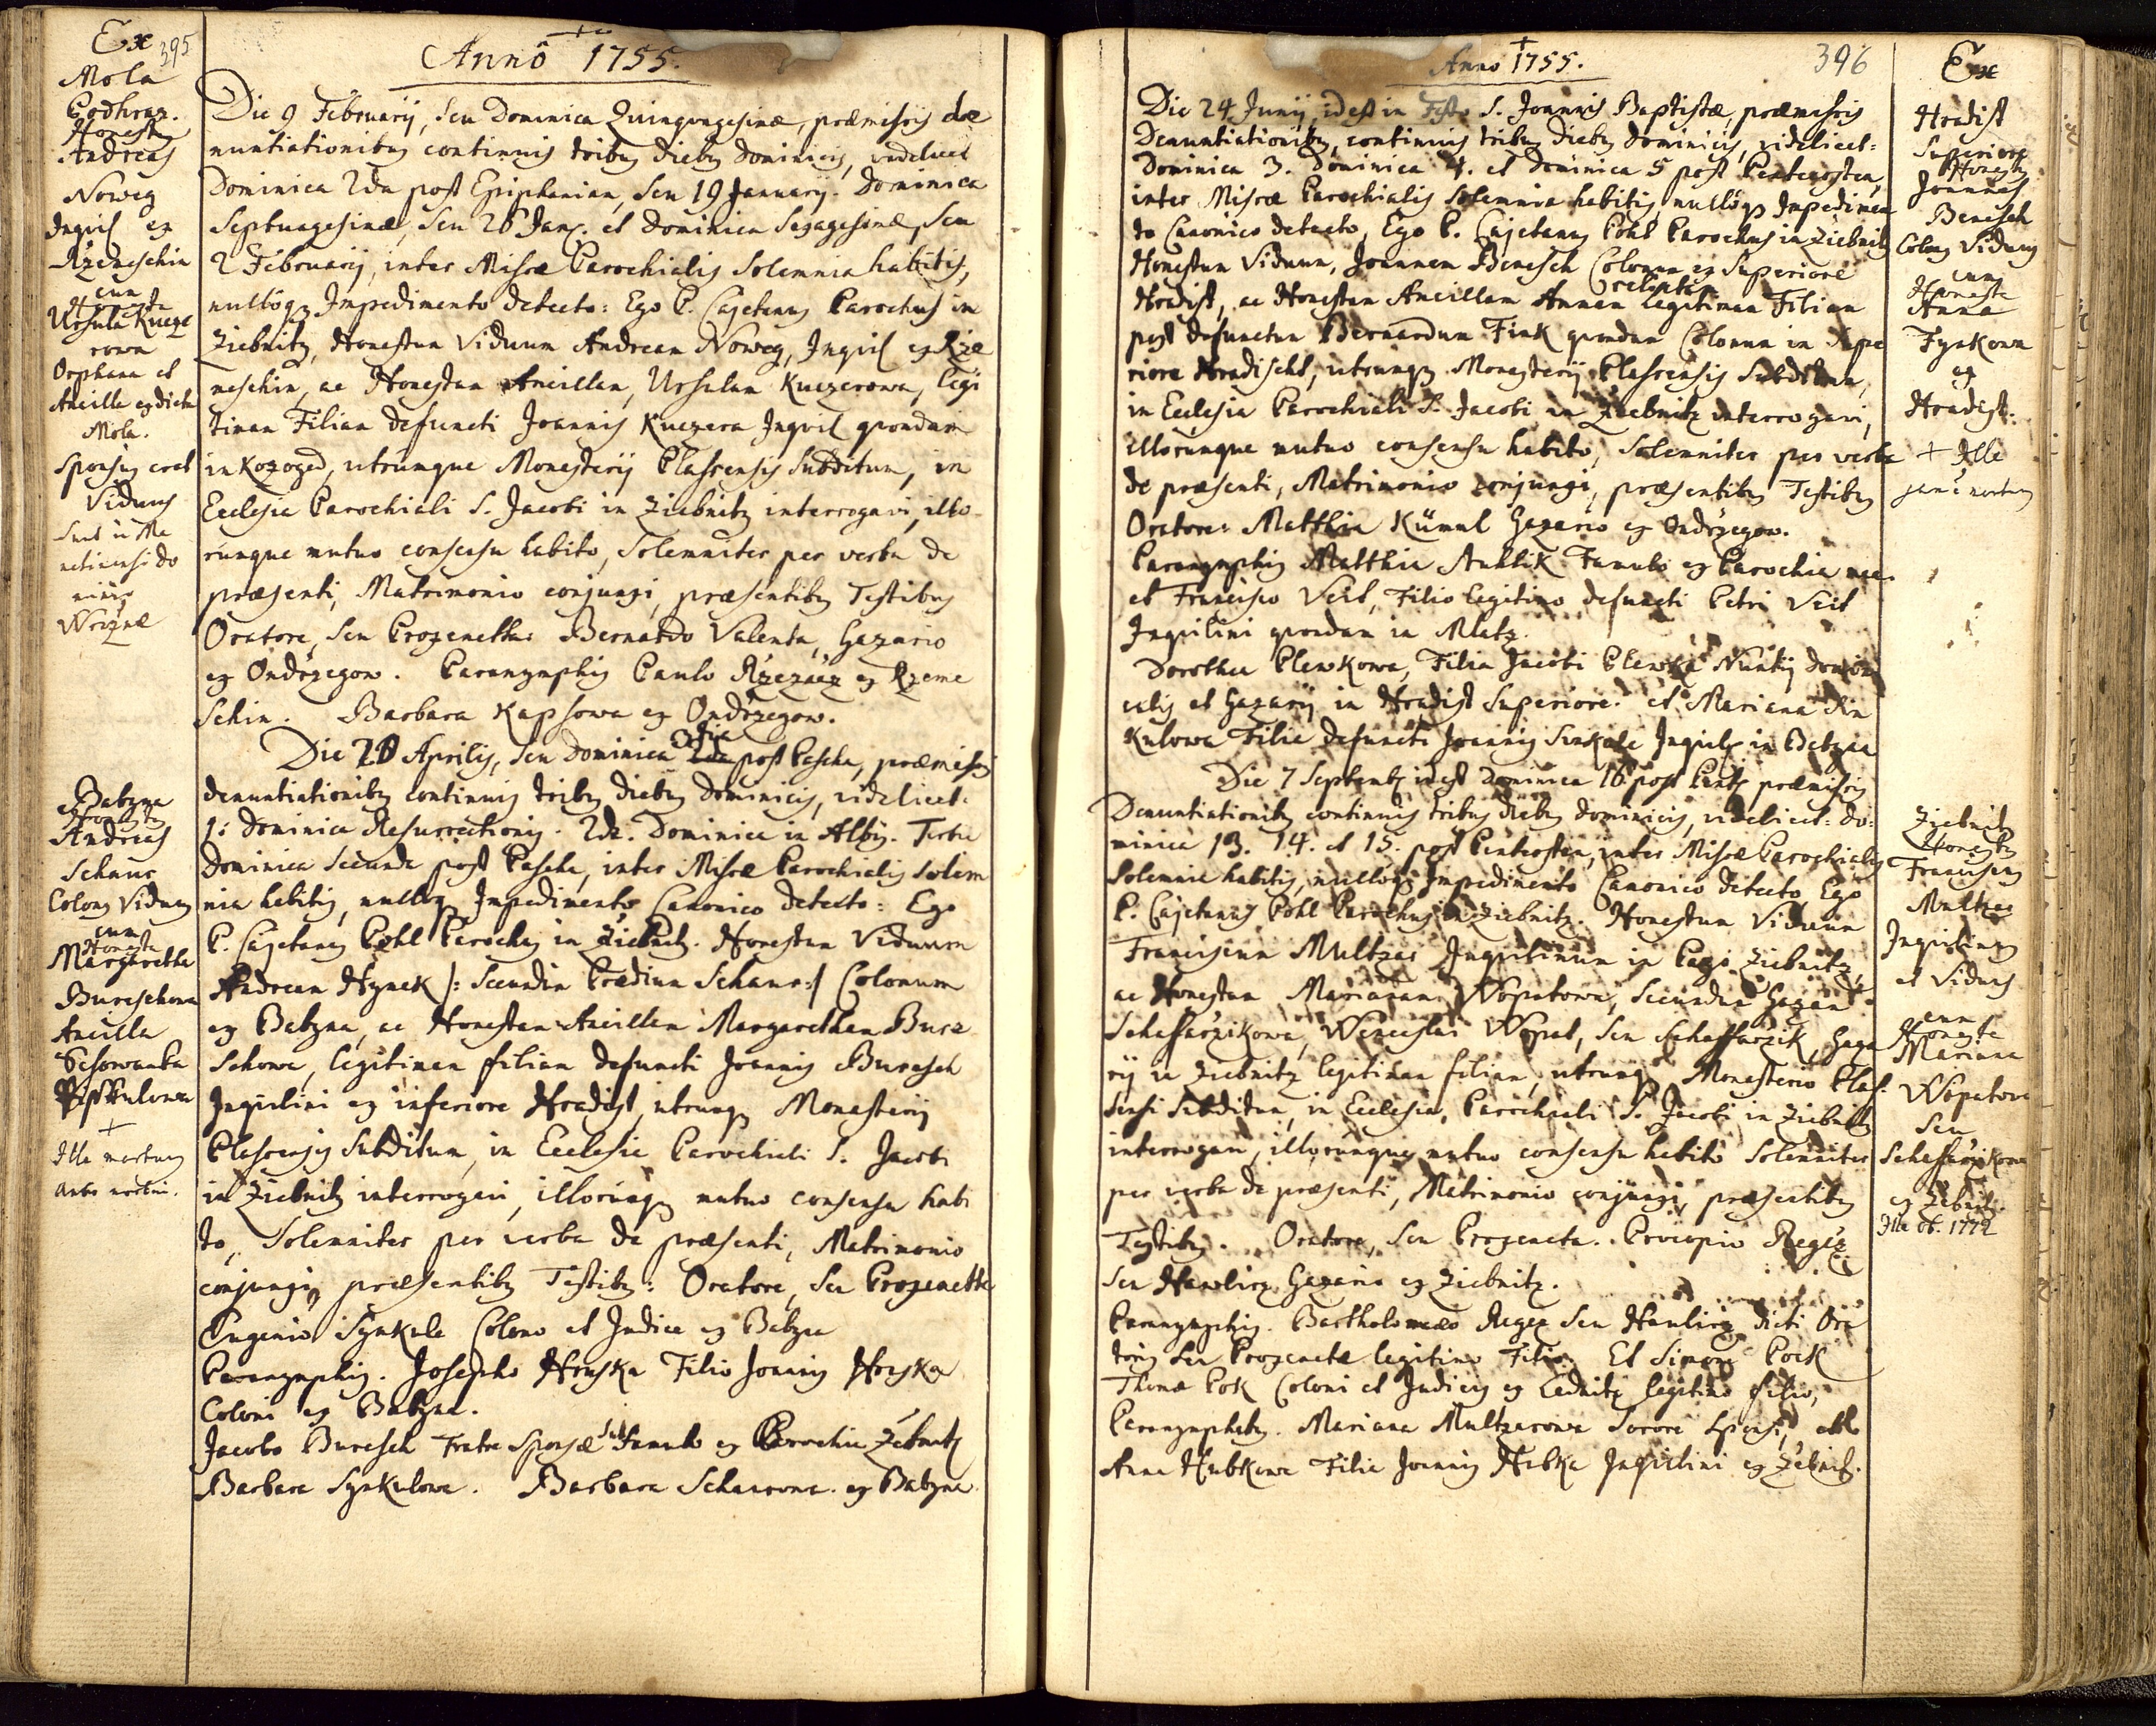 Ex
395
Mola
Podhraz.
Honestus
Andreas
Noweg
Inquil ex
Rzemeschin
cum
Honesta
Ursula Kucze
rowa
Orphana et
Ancilla ex dicta
Mola.
Sponsus erat
Viduus
Sunt in Ma
netinensi do
minio
Annô 1755.
Die 9 Februarij, seu Dominica Quinquagesimæ, præmissis de
nuntiationibus continuis tribus diebus Dominicis, videlicet
Dominica 2da post Epiphaniam, seu 19 Januarij. Dominica
Septuagesimæ, seu 26 Jan. et Dominica Sexagesimæ, seu
2 Februarij, inter Missæ Parochialis Solemnia habitis,
nullôq Impedimento detecto: Ego P. Cajetanus Parochus in
Ziebnitz, Honestum Viduum Andream Noweg, Inquil ex Rze
meschin, ac Honestam Ancillam, Ursulam Kuczerowa, legi
timam Filiam defuncti Joannis Kuczera Inquil quondam
in Kozoged, utrumque Monasterij Plassensis Subditum, in
Ecclesia Parochiali S. Jacobi in Ziebnitz interrogavi, illo
rumque mutuo consensu habito, Solemniter per verba de
præsenti, Matrimonio conjunxi, præsentibus Testibus
Oratore, seu Proxenetta: Bernardo Valenta, Gazario
ex Ondrzegow. Paranymphis Paulo Rzezacz ex Rzeme
schin. Barbara Kapsowa ex Ondrzegow.
Die 20 Aprilis, seu Dominica 3tia post Pascha, præmissis
denuntiationibus continuis tribus diebus Dominicis, videlicet
1: Dominica Resurrectionis. 2da. Dominica in Albis. Tertia
Dominica secunda post Pascha, inter Missæ Parochialis solem
nia habitis, nulloq Impedimento Canonico detecto: Ego
P. Cajetanus Pohl Parochus in Ziebnitz. Honestum Viduum
Andream Hynek |: secundum Prædium Schaur :| Colonum
ex Babzna, ac Honestam Ancillam Margaretham Bure
schowa, legitimam filiam defuncti Joannis Buresch
Inquilini ex inferiore Hradist, utrumq Monasterij
Plassensis Subditum, in Ecclesia Parochiali S. Jacobi
in Ziebnitz interrogavi, illorumq mutuo consensu habi
to, Solemniter per verba de præsenti, Matrimonio
conjunxi, præsentibus Testibus: Oratore, seu Proxenetta
Eugenio Synkule Colono et Judice ex Babzna
Paranymphis. Josepho Hruska Filio Joannis Hruska
Coloni ex Babzna.
Jacobo Buresch Fratre Sponsæ Famulo ex Parochia Zebnitz
Barbara Synkulowa. Barbara Schaurowa. ex Babzna.
ex Babzna
Honestus
Andreas
Schaur
Colonus Viduus
cum
Honesta
Margaretha
Bureschowa
Ancilla
+
Ille mortuus
Anno 1755.
396
Ex
Die 24 Junij, id est in Festo S. Joannis Baptistæ, præmissis
Denuntiationibus, continuis tribus diebus Dominicis, videlicet:
Dominica 3. Dominica 4. et Dominica 5 post Pentecosten,
inter Missæ Parochialis Solemnia habitis, nullôq Impedimen
to Canonico detecto, Ego P. Cajetanus Pohl Parochus in Ziebnitz
Honestum Viduum, Joannem Benesch Colonum ex Superiore
relictam
Hradist, ac Honestam Ancillam Annam legitimam Filiam
post defunctum Bernardum Fink quondam Colonum in Supe
riore Hradischt, utrumq Monasterij Plassensis Subditum,
in Ecclesia Parochiali S. Jacobi in Ziebnitz interrogavi,
illorumque mutuo consensu habito, Solemniter per verba
de præsenti, Matrimonio conjunxi, præsentibus Testibus
Oratore: Matthia Kümml Gazario ex Ondrzegow.
Paranymphis Matthia Auklik Famulo ex Parochia mea
et Francisco Veit, Filio legitimo defuncti Petri Veit
Inquilini quondam in Mlatz.
Dorothea Plewkowa, Filia Jacobi Plewka Nuntij domini
calis et Gazarij in Hradist Superiore. et Mariana Sin
kulowa Filia defuncti Joannis Sinkule Inquil in Babzna
Die 7 Septemb, id est Dominica 16 post Pent, præmissis
Denuntiationibus continuis tribus diebus dominicis, videlicet: do:
minica 13. 14. et 15. post Pentecosten, inter Missæ Parochialis
Solemnia habitis, nullôq Impedimento Canonico detecto, Ego
P. Cajetanus Pohl Parochus in Ziebnitz. Honestum Viduum
Franciscum Multzer Inquilinum in Pago Ziebnitz,
ac Honestam Marianam Wopatowa, secundum Gazam
Schaffarzikowa, Wenceslai Wopat, seu Schaffarzik, Gaza
rij in Ziebnitz legitimam filiam, utrumq Monasterio Plas
sensi Subditum, in Ecclesia, Parochiali S. Jacobi in Ziebnitz
interrogavi, illorumque mutuo consensu habito Solemniter
per verba de præsenti, Matrimonio conjunxi, præsentibus
Testibus. Oratore, seu Proxeneta. Procopio Regez
seu Hawlicz Gazario ex Ziebnitz.
Paranymphis. Bartholomæo Regez seu Hawlicz dicti Ora
toris seu Proxenetæ legitimo Filio. Et Simone Pok
Thomæ Pok Coloni et Judicis ex Lednitz legitimo filio,
Paranymphabus. Mariana Multzerowa Sorore Sponsi, et
Anna Hubkowa Filia Joannis Hubka Inquilini ex Zebnitz.
Hradist
Superiore
Honestus
Joannes
Benesch
Colonus Viduus
cum
Honesta
Anna
Fynkowa
ex
Hradist.
+ Ille
Ziebnitz
Honestus
Franciscus
Multzer
Inquilinus
et Viduus
cum
Honesta
Mariana
Wopatowa
seu
Schaffarzikowa
ex Zebnitz.
Ille ob. 1772